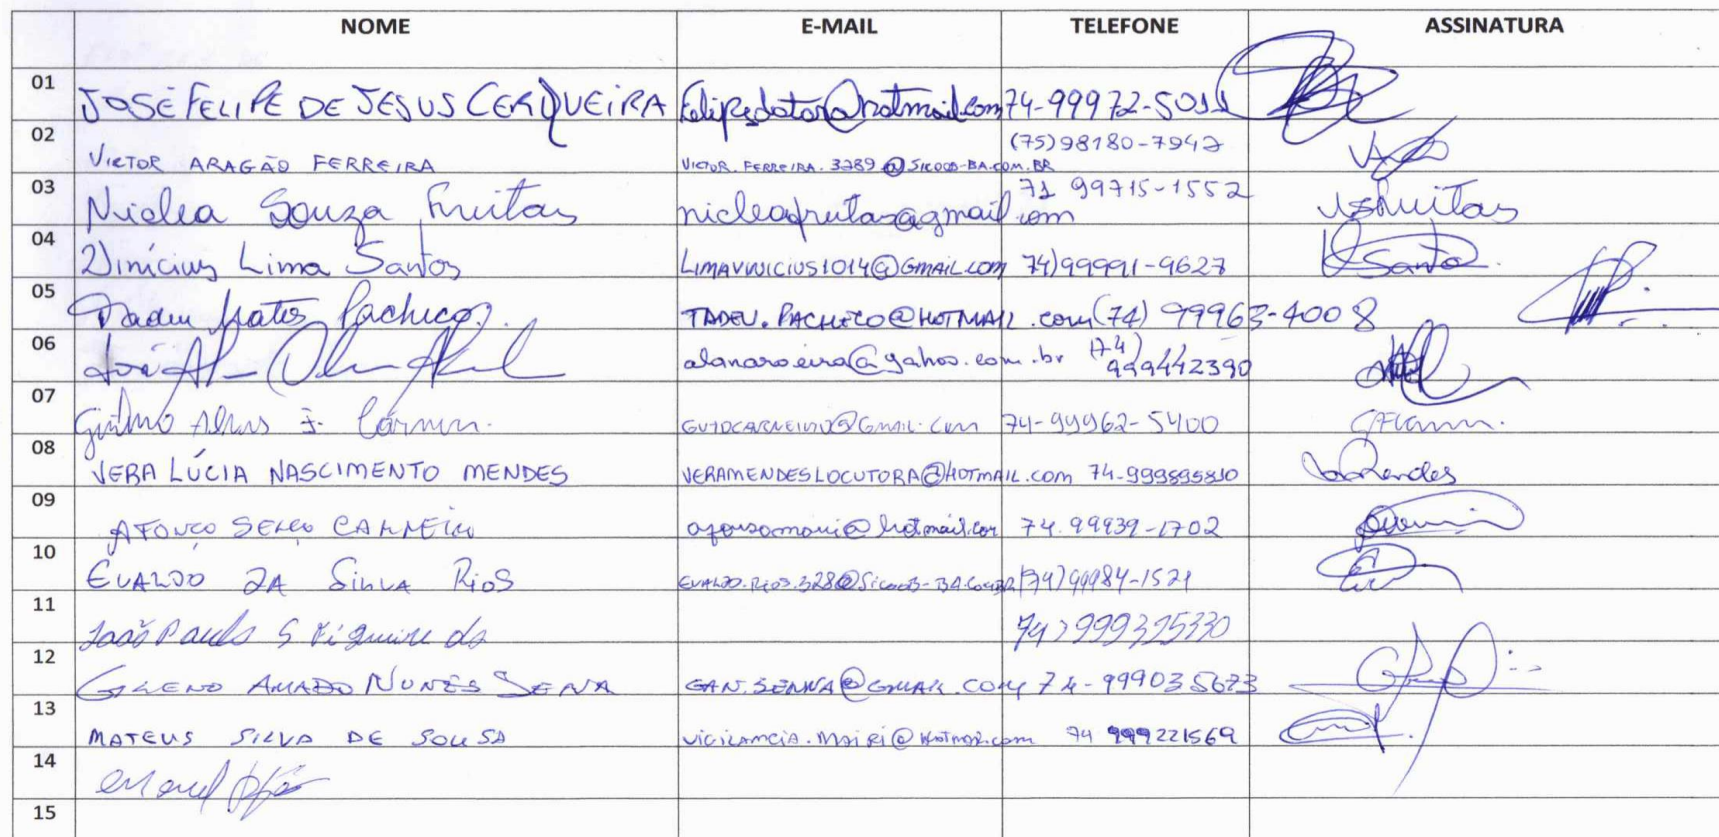 NOME E-MAIL TELEFONE ASSINATURA
01 JOSÉ FELIPE DE JESUS CERQUEIRA felipedator@hotmail.com 74-99972-5011
02 VICTOR ARAGÃO FERREIRA VICTOR.FERREIRA.3289@SICOOB-BA.COM.BR (75)98180-7942
03 Niclea Souza Freitas nicleafreitas@gmail.com 71 99715-1552
04 Vinícius Lima Santos LIMAVINICIUS1014@GMAIL.COM 74)99991-9627 Santos
05 Tadeu Matos Pacheco TADEU.PACHECO@HOTMAIL.com (74) 99963-4008
06 José alanaroeira@yahoo.com.br (74) 999442390
07 74-99962-5400
08 VERA LÚCIA NASCIMENTO MENDES VERAMENDESLOCUTORA@HOTMAIL.com 74-999895810 Mendes
09 AFONSO CARNEIRO 74.99939-1702
10 EVALDO DA SILVA RIOS (74)99984-1521
11 João Paulo S Figueiredo 74)999325330
12 GILENO AMADO NUNES SENA GAN.SENNA@GMAIL.COM 74-999035673
13 MATEUS SILVA DE SOUSA VIGILANCIA.MAIRI@HOTMAIL.com 74 999221569
14
15